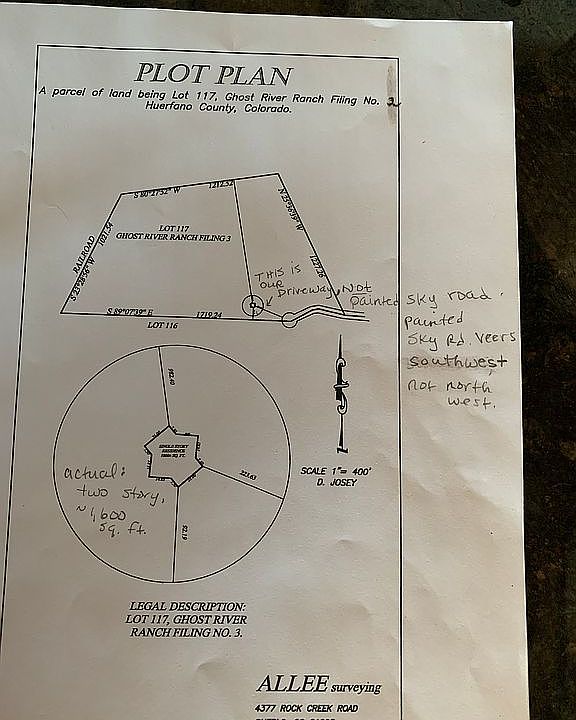 PLOT PLAN
A parcel of land being Lot 117, Ghost River Ranch Filing No. 2
Huerfano County, Colorado.
S 80°27'52" W 1212.52
N 25°36'49" W 1227.26
LOT 117
GHOST RIVER RANCH FILING 3
RAILROAD
S 23°28'56" W 1021.54
THIS is
our
Driveway, Not
Painted Sky road.
painted
Sky Rd. Veers
southwest,
not north
west.
S 89°07'39" E 1719.24
LOT 116
982.40
SINGLE STORY
RESIDENCE
SQ. FT.
323.63
92.19
actual:
two story,
~1,600
sq. ft.
SCALE 1"= 400'
D. JOSEY
LEGAL DESCRIPTION:
LOT 117, GHOST RIVER
RANCH FILING NO. 3.
ALLEE surveying
4377 ROCK CREEK ROAD